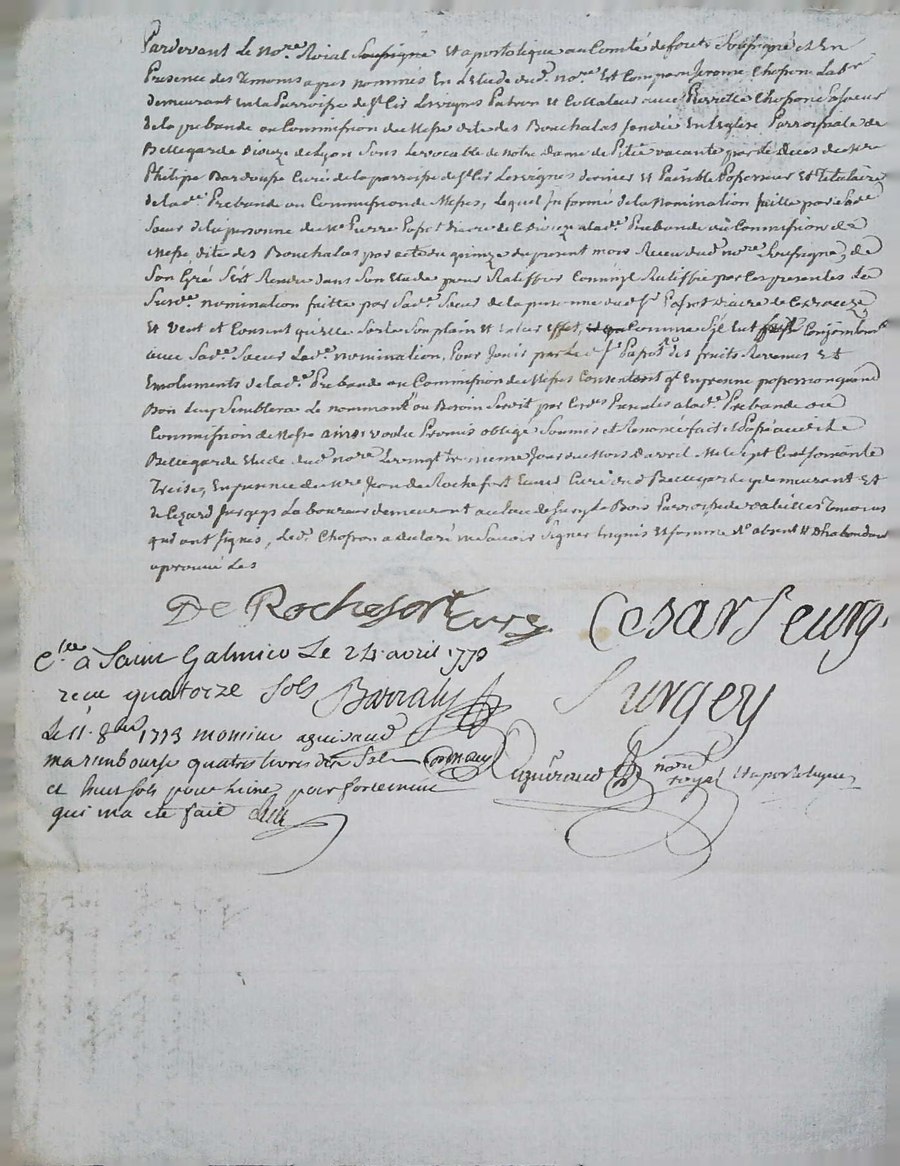 Pardevant Le no.re Roial Soussigné Et apostolique au Comté de forets Soussigné et En
Presence des temoins apres nommés En L'Etude dud. no.re Est Comparu Jerome Chofron Lab.r
demeurant en la Parroisse de S.t Cir Les vignes Patron et Collateur avec Pierrette Chofron Sa soeur
de la prebande ou Commission de Messes dite des Bouchalas fondée En L'eglise Parroissiale de
Bellegarde Dioceze de Lyon Sous Le vocable de notre dame de Pitié vacante par Le deces de M.re
Philipe Bardousse Curé de la parroisse de S.t Cir Les vignes dernier et Paisible Possesseur Et titulaire
de lad.e Prebande ou Commission de Messes, Lequel Informé de la Nomination faitte par Sad.e
Soeur de la personne de M.e Pierre Papot diacre de C. Dioceze a lad.e Prebande ou Commission de
Messe, dite des Bouchalas par acte du quinze du present mois Receu dud. no.re Soussigné, de
Son Gré S'est Rendu dans Son Etude pour Ratiffier Comme il Ratiffie par Ces presentes La
Susd.e nomination faitte par Sad.e Soeur de la personne dud. S.r Papot diacre de Ce dioceze
Et veut et Consent qu'elle Sorte Son plain et Entier effet, Comme S'il Eut fait Conjointem.t
avec Sad.e Soeur Lad.e nomination, Pour Jouir par Led. S.r Papot des fruits Revenus Et
Emoluments de lad.e Prebande ou Commission de Messes Consentent q.l En prenne possession quand
Bon Luy Semblera Le nommant ou Besoin Seroit par Ces d. Presentes a lad.e Prebande ou
Commission de Messe ainsi voulu Promis obligé Soumis et Renoncé fait et Passé aud. Lieu
Bellegarde Etude dud. no.re Le vingt troisieme Jour du Mois d'avril Mil Sept Cent Soixante
Treize, En presence de M.re Jean de Rochefort Curé dud. Bellegarde y demeurant Et
de Cezard Laboureur demeurant au Lieu de Parroisse de valeilles temoins
qui ont Signés, Led. Chofron a declaré ne Savoir Signer Enquis et Sommé
aprouvé Les
De Rochefort Curé
Cesar Seurg.
C.lée à Saint Galmier Le 24 avril 1773
recu quatorze Sols Barraly
Surgey
Le 11. 8.bre 1773 monsieur aguiraud
ma rambourse quatre livres dix Sols
et huit sols pour
qui ma eté fait
Aguiraud no.re royal Et apostolique